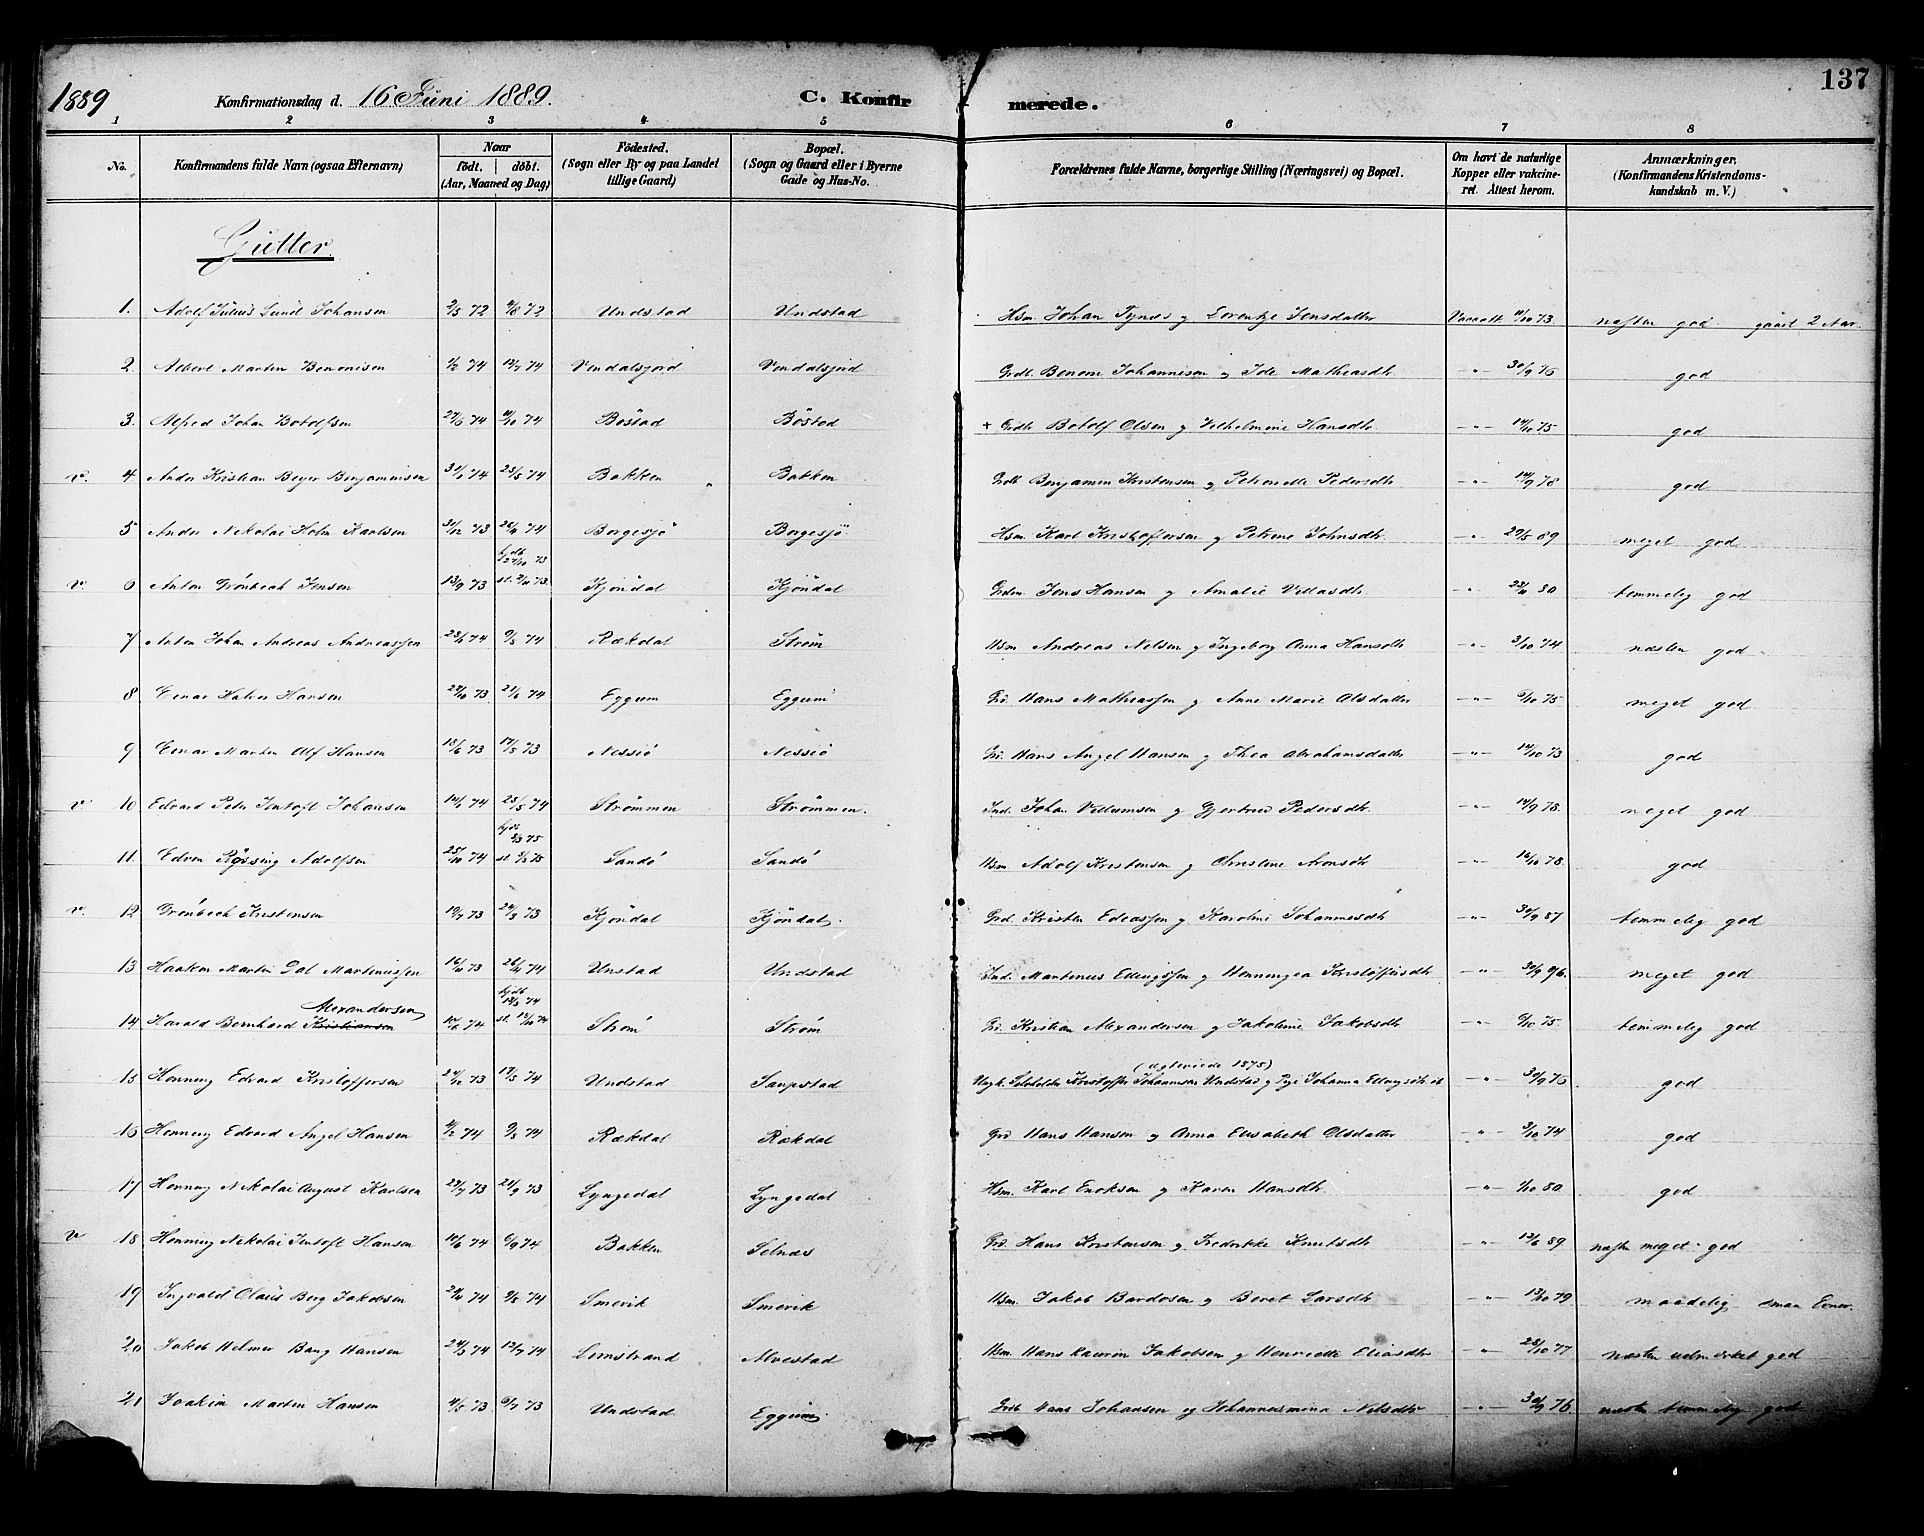 1889 Konfirmationsdag d. 16 Juni 1889. C. Konfirmerede. 137
1 2 3 4 5 6 7 8
No. Konfirmandens fulde Navn (ogsaa Efternavn) Naar födt. döbt. (Aar, Maaned og Dag) Födested. (Sogn eller By og paa Landet tillige Gaard) Bopæl. (Sogn og Gaard eller i Byerne Gade og Hus-No. Forældrenes fulde Navne, borgerlige Stilling (Næringsvei) og Bopæl. Om havt de naturlige Kopper eller vakcineret. Attest herom. Anmærkninger. (Konfirmandens Kristendomskundskab m. V.)
Gutter.
1. Adolf Julius Lund Johansen 2/5 72 72 Undstad Undstad Hsm. Johan Tynæs og Lorentze Jensdatter Vaccatt. 73. næsten god. gaaet 2 Aar.
2 Albert Martin Benonisen 1/2 74 12/7 74 Vendalsjord Vendalsjord Benoni Johannesen og Ide Matheasdtr -"- 30/9 75 god
3. Alfred Johan Botolfsen 27/5 74 11/10 74 Böstad Böstad + Botolf Olsen og Vilhelmine Hansdtr. -"- 14/10 75 god
v. 4 Ander Kristian Beyer Benjaminsen 74 25/5 74 Bakken Bakken Benjamin Kristensen og Petronelle Pedersdtr -"- 14/9 78 god
5 Ander Nikolai Holm Karlsen 31/12 73 74 Borgesjö Borgesjö Hsm. Karl Kristoffersen og Petrine Johnsdtr. " 29/5 89 meget god
v. 6 Anton Grönbech Jensen 13/9 73 hjdb 73 st. 73. Kjöndal Kjöndal Grdm. Jens Hansen og Amalie Villasdtr. " 80 temmelig god
7 Anton Johan Andreas Andreassen 74 9/5 74 Rækdal Ström Hsm. Andreas Nilsen og Ingeborg Anna Hansdtr -"- 3/10 74 næsten god
8 Einar Halvor Hansen 29/10 73 21/6 74 Eggum Eggum Grd. Hans Mathiassen og Anne Marie Olsdatter -"- 75 meget god
9 Einar Martin Alf Hansen 73 73 Nessjö Nessjö Gr. Hans Angel Hansen og Thea Abrahamsdatter -"- 14/10 73 god
v 10 Edvard Peter Jentoft Johansen 74 25/5 74 Strömmen Strömmen. Ind. Johan Villumsen og Gjertrud Pedersdtr. -"- 14/9 78. meget god
11. Edvin Røssing Adolfsen 25/10 74 hjdb 75 st 75 Sandö Sandö Hsm. Adolf Kristensen og Christine Aronsdtr -"- 16/10 78. god
v. 12 Grönbech Kristensen 19/7 73 24/8 73 Kjöndal Kjöndal. Grd. Kristen Edeassen og Karoline Johannesdtr -"- 30/9 87 temmelig god
13 Haakon Martin Dal Martinussen 16/10 73 74 Unstad Undstad Ind. Martinus Ellingssen og Henningea Kristoffersdtr -"- 30/9 meget god
14 Harald Bernhard Kristiansen Alexandersen 74 hjdb 74 st. 74 Ström Ström Gr. Kristian Alexandersen og Jakobine Jakobsdtr -"- 75. temmelig god
15 Henning Edvard Kristoffersen 24/12 73 17/5 74 Undstad Saupstad (Ugteviede 1875) Ungk. Kristoffer Johannsen Undstad og Pige Johanna Ellingsdtr. -"- 30/9 75 god
16 Henning Edvard Angel Hansen 74 9/5 74 Rækdal Rækdal Grd Hans Hansen og Anna Elisabeth Olsdatter -"- 3/10 74 god
17 Henning Nikolai August Karlsen 29/7 73 21/9 73 Lyngedal Lyngedal Hsm. Karl Enoksen og Karen Hansdtr -"- 1/10 80 god
v 18 Henning Nikolai Jentoft Hansen 74 6/9 74 Bakken Selnæs Grd. Hans Kristensen og Fredrikke Knutsdtr -"- 12/6 89 næsten meget god
19 Ingvald Olaüs Berg Jakobsen 74 74 Smerik Smerik Hsm. Jakob Bardosen og Beret Larsdtr -"- 13/10 79 maadelig smaa Evner.
20 Jakob Helmer Bang Hansen 24/3 74 12/7 74 Limstrand Alvestad Hsm. Hans Kaurin Jakobsen og Henriette Eliasdtr -"- 25/10 77 næsten udmærket god
21 Joakim Martin Hansen 4/5 73 6/7 73 Undstad Eggum. Hans Johansen og Johannesmina Nilsdtr -"- 30/9 76. næsten temmelig god